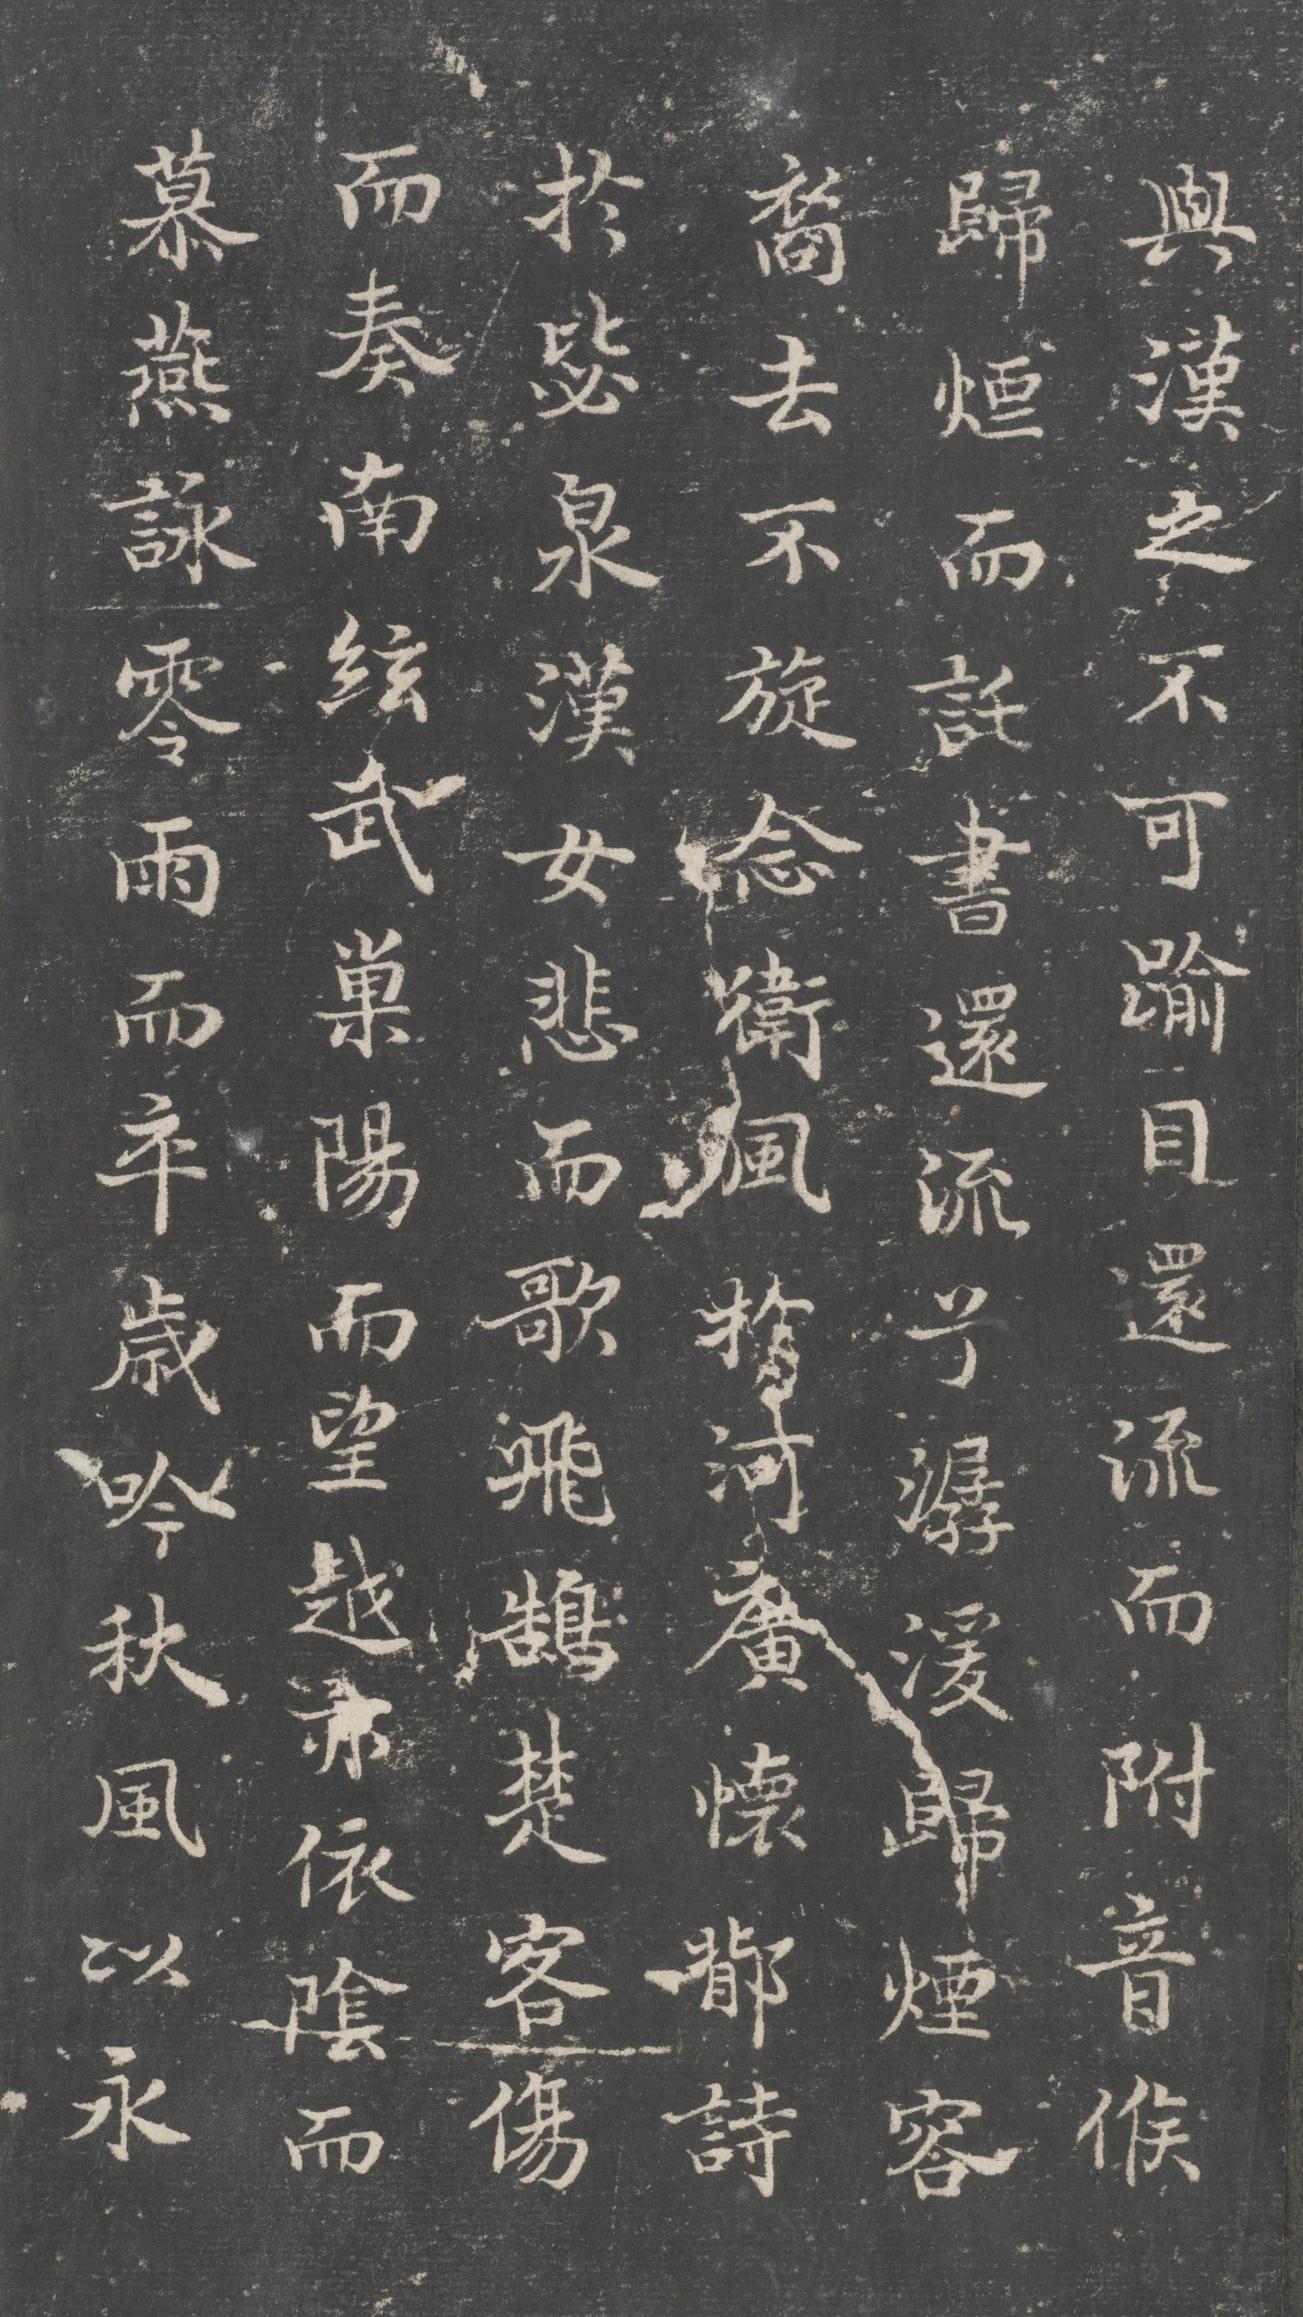 與漢之不可踰目還流而附音候
歸煙而託書還流兮潺湲歸煙容
裔去不旋念衛風於河廣懷邶詩
於毖泉漢女悲而歌飛鵠楚客傷
而奏南絃武巢陽而望越亦依陰而
慕燕詠零雨而卒歲吟秋風以永